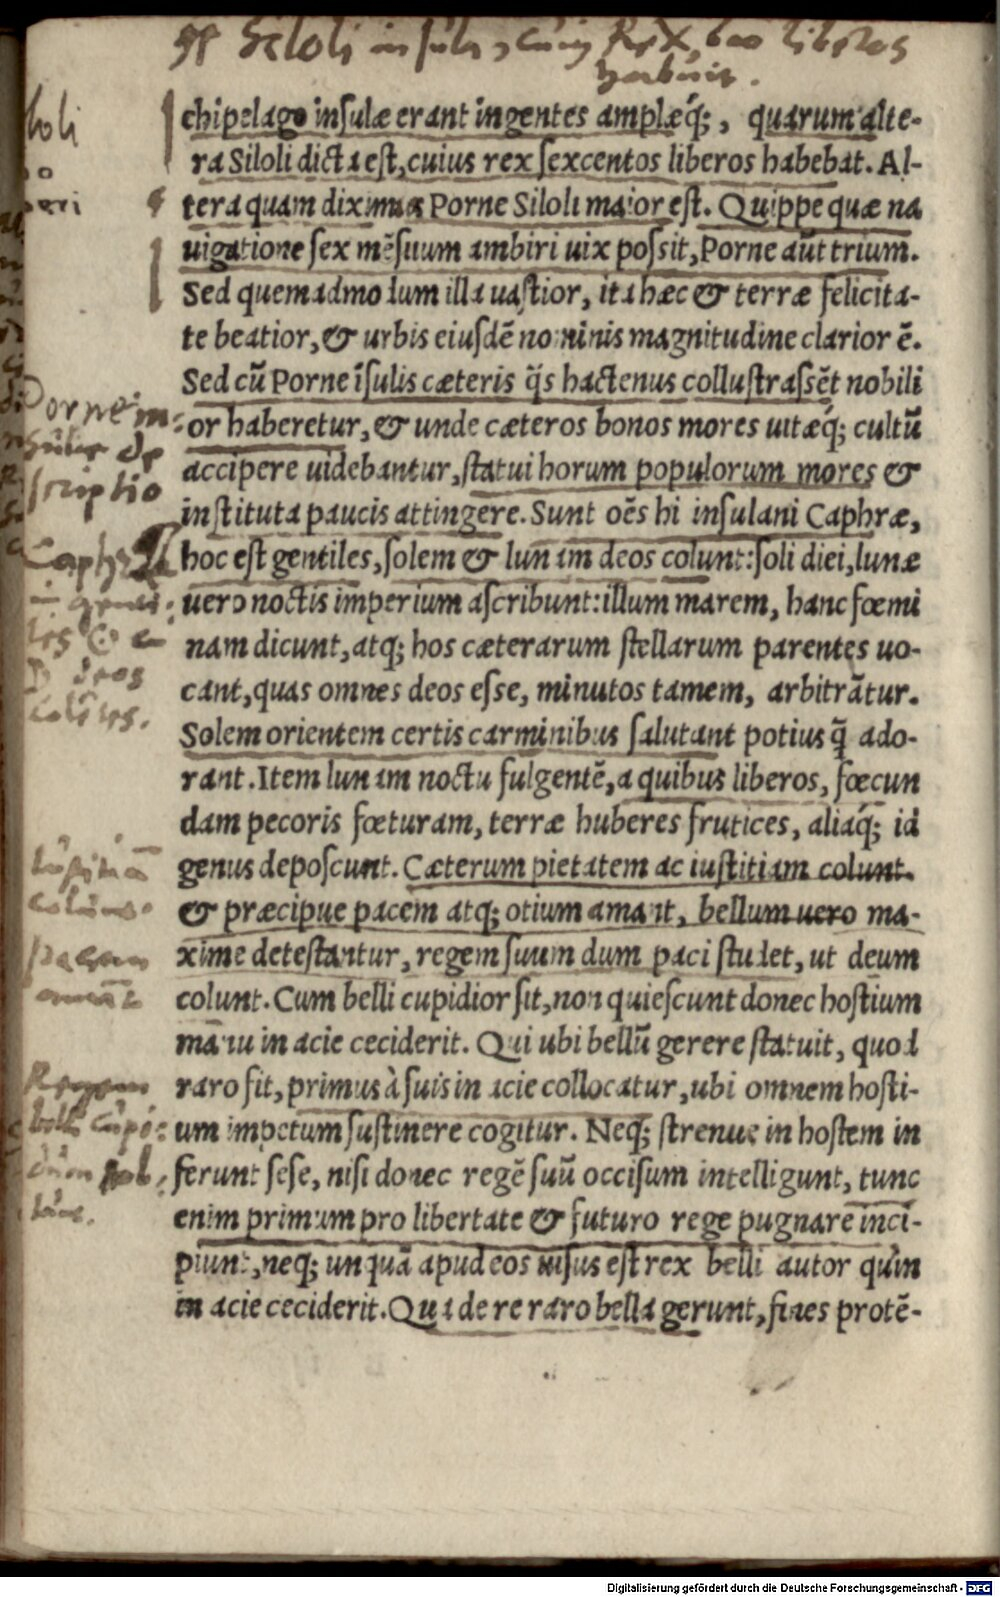 Siloli insula, cuius Rex, 600 liberos
habuit.
chipelago insulæ erant ingentes amplæq́;, quarum alte-
ra Siloli dicta est, cuius rex sexcentos liberos habebat. Al-
tera quam diximus Porne Siloli maior est. Quippe quæ na
uigatione sex mẽsium ambiri uix possit, Porne aũt trium.
Sed quemadmodum illa uastior, ita hæc & terræ felicita-
te beatior, & urbis eiusdẽ nominis magnitudine clarior ẽ.
Sed cũ Porne ĩsulis cæteris q̃s hactenus collustrassẽt nobili
or haberetur, & unde cæteros bonos mores uitæq́; cultũ
accipere uidebantur, statui horum populorum mores &
instituta paucis attingere. Sunt oẽs hi insulani Caphræ,
hoc est gentiles, solem & lunam deos colunt: soli diei, lunæ
uero noctis imperium ascribunt: illum marem, hanc fœmi
nam dicunt, atq; hos cæterarum stellarum parentes uo-
cant, quas omnes deos esse, minutos tamem, arbitrãtur.
Solem orientem certis carminibus salutant potius q̃ ado-
rant. Item lunam noctu fulgentẽ, a quibus liberos, fœcun
dam pecoris fœturam, terræ huberes frutices, aliaq́; id
genus deposcunt. Cæterum pietatem ac iustitiam colunt.
& præcipue pacem atq; otium amant, bellum uero ma-
xime detestantur, regem suum dum paci studet, ut deum
colunt. Cum belli cupidior sit, non quiescunt donec hostium
manu in acie ceciderit. Qui ubi bellũ gerere statuit, quod
raro fit, primus à suis in acie collocatur, ubi omnem hosti-
um impetum sustinere cogitur. Neq; strenue in hostem in
ferunt sese, nisi donec regẽ suũ occisum intelligunt, tunc
enim primum pro libertate & futuro rege pugnare inci-
piunt, neq; unquã apud eos uisus est rex belli autor quin
in acie ceciderit. Qua de re raro bella gerunt, fines protẽ-
Porne in-
sulæ de
scriptio
Caphræ
gentiles
deos
Iustitiã
colunt
pacem
amãt
Regem
belli cupi-
dum
Digitalisierung gefördert durch die Deutsche Forschungsgemeinschaft - DFG